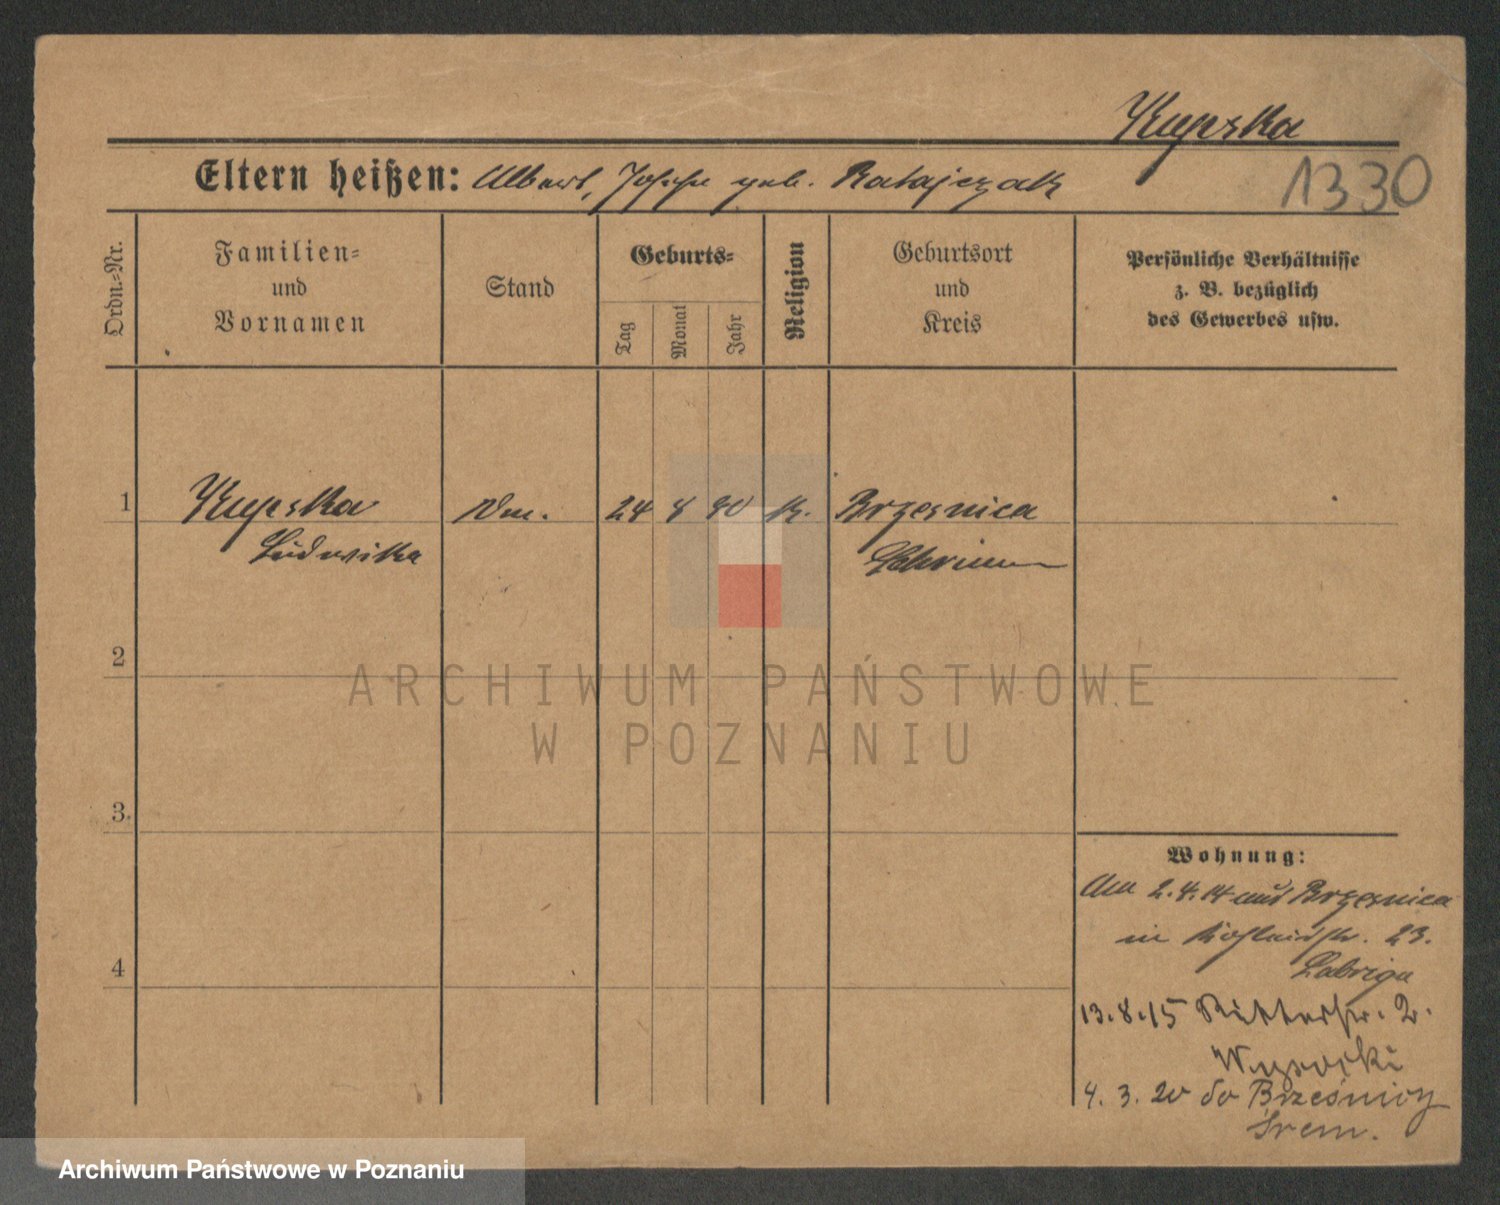 Kupska
Eltern heißen: Albert, Josefa geb. Ratajczak
1330
Ordn.-Nr.
Familien-
und
Vornamen
Stand
Geburts-
Tag
Monat
Jahr
Religion
Geburtsort
und
Kreis
Persönliche Verhältnisse
z. B. bezüglich
des Gewerbes usw.
1 Kupska 24 8 90 k. Brzesnica
Ludwika Schrimm
2
3.
4
Wohnung:
Am 2.4.14 aus Brzesnica
in 23.
13.8.15 Ritterstr. 2.
Wysocki
4. 3. 20 do Brześnicy
Śrem.
ARCHIWUM PAŃSTWOWE
W POZNANIU
Archiwum Państwowe w Poznaniu